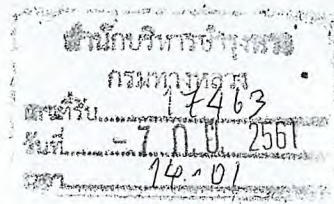 สำนักบริหารบำรุงทาง
กรมทางหลวง
เลขที่รับ 17463
วันที่ - 7 ก.ย. 2561
เวลา 14.01